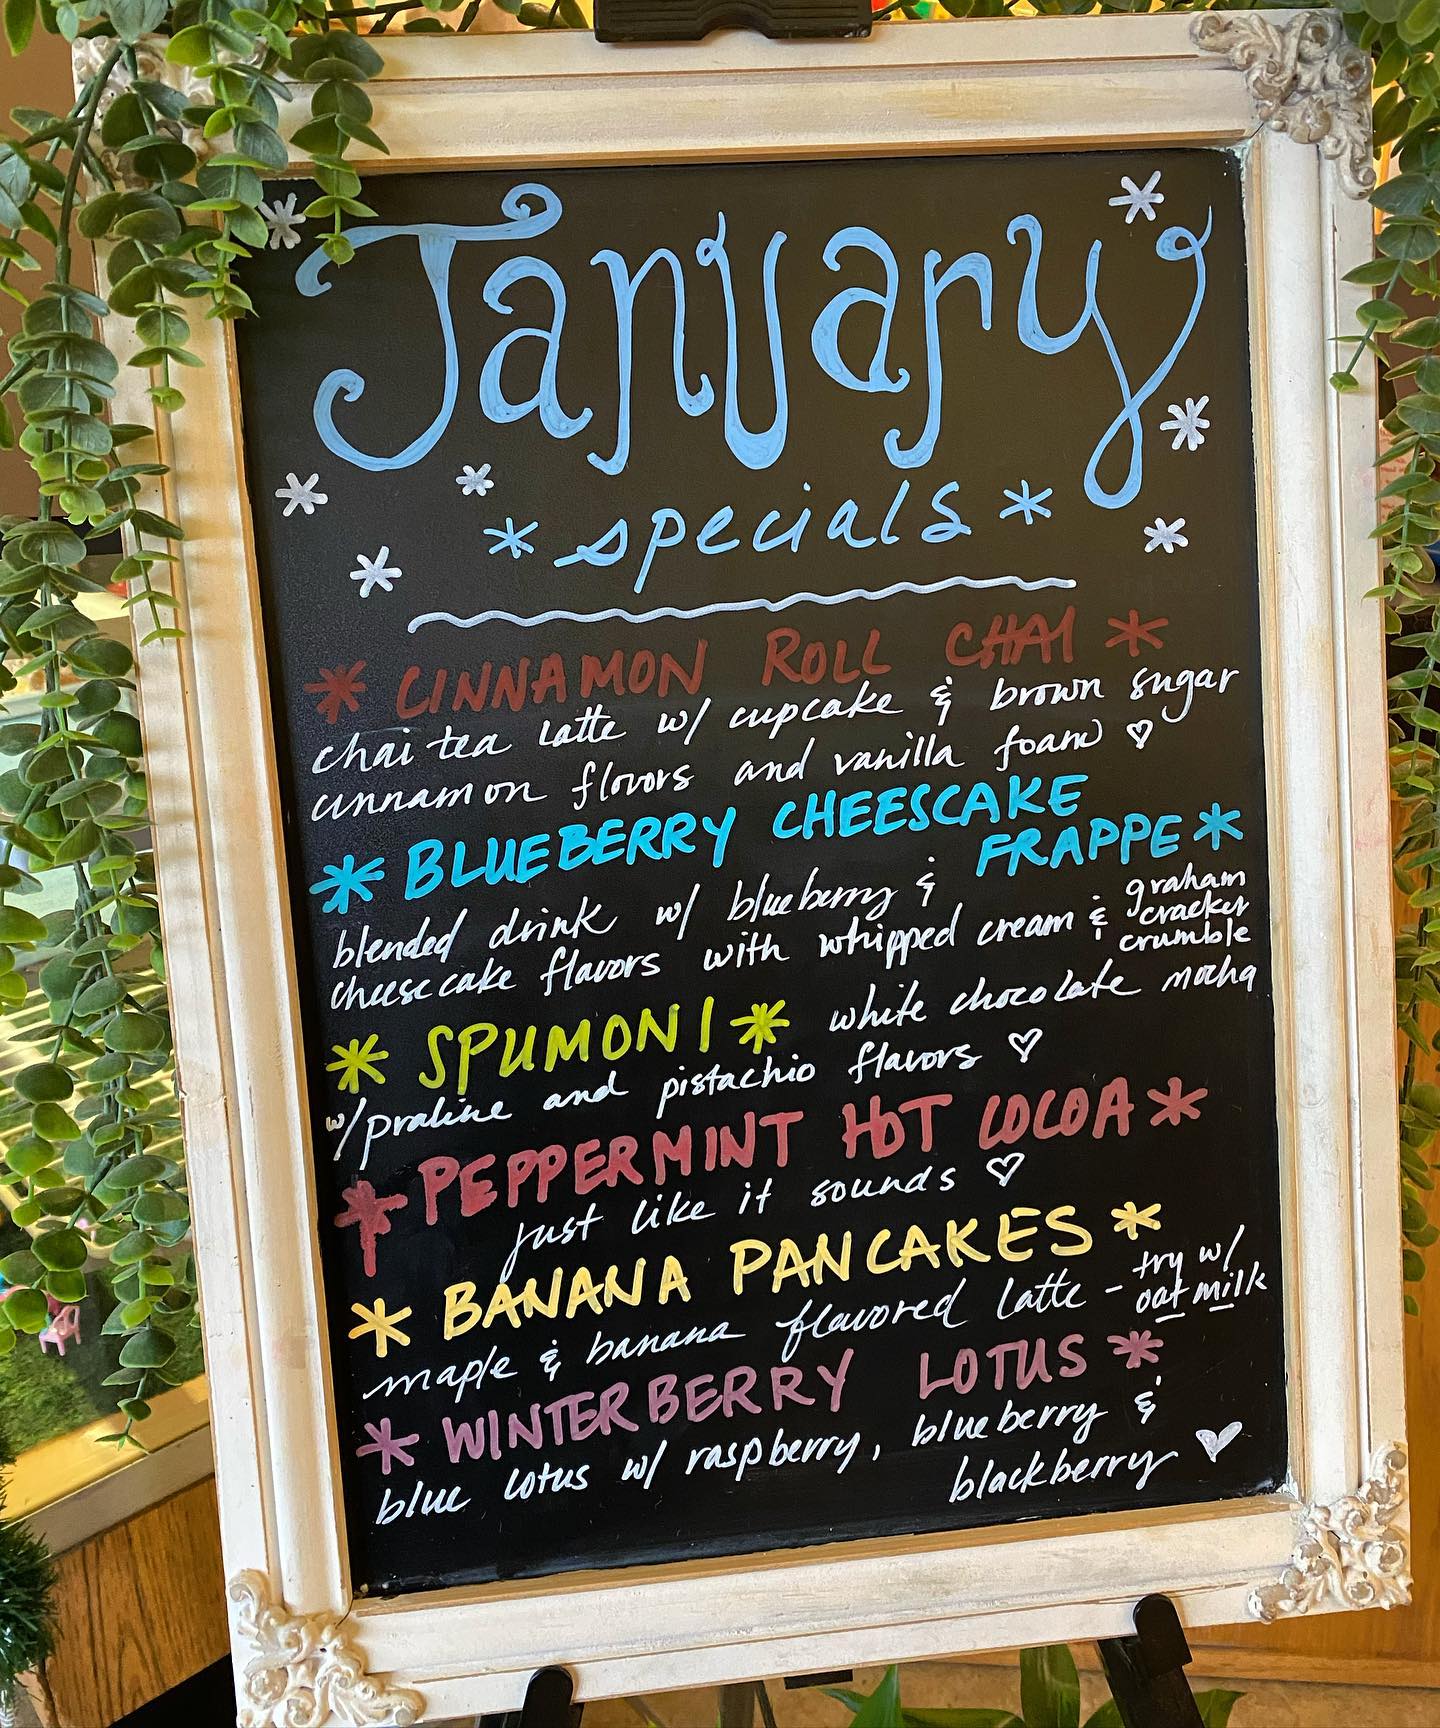 January
specials
CINNAMON ROLL CHAI
chai tea latte w/ cupcake & brown sugar
cinnamon flovors and vanilla foam
BLUEBERRY CHEESCAKE
FRAPPE
blended drink w/ blueberry &
cheesecake flavors with whipped cream & graham
cracker
crumble
SPUMONI white chocolate mocha
w/ praline and pistachio flavors
PEPPERMINT HOT COCOA
just like it sounds
BANANA PANCAKES
maple & banana flavored latte - try w/
oat milk
WINTERBERRY LOTUS
blue lotus w/ raspberry, blueberry &
blackberry